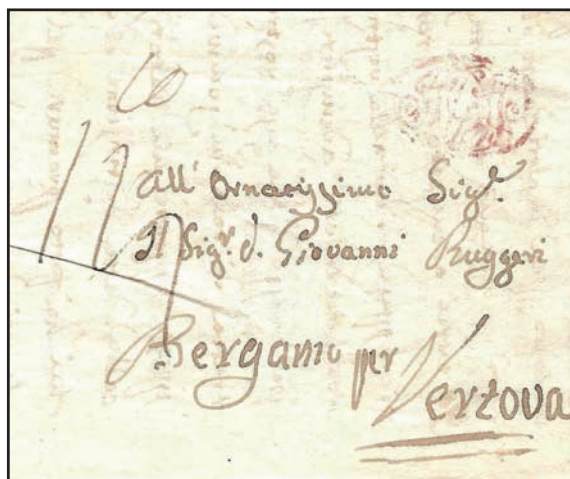 All' Ornatissimo Sig.r
Il Sig.r d. Giovanni Ruggeri
Bergamo per
Vertova